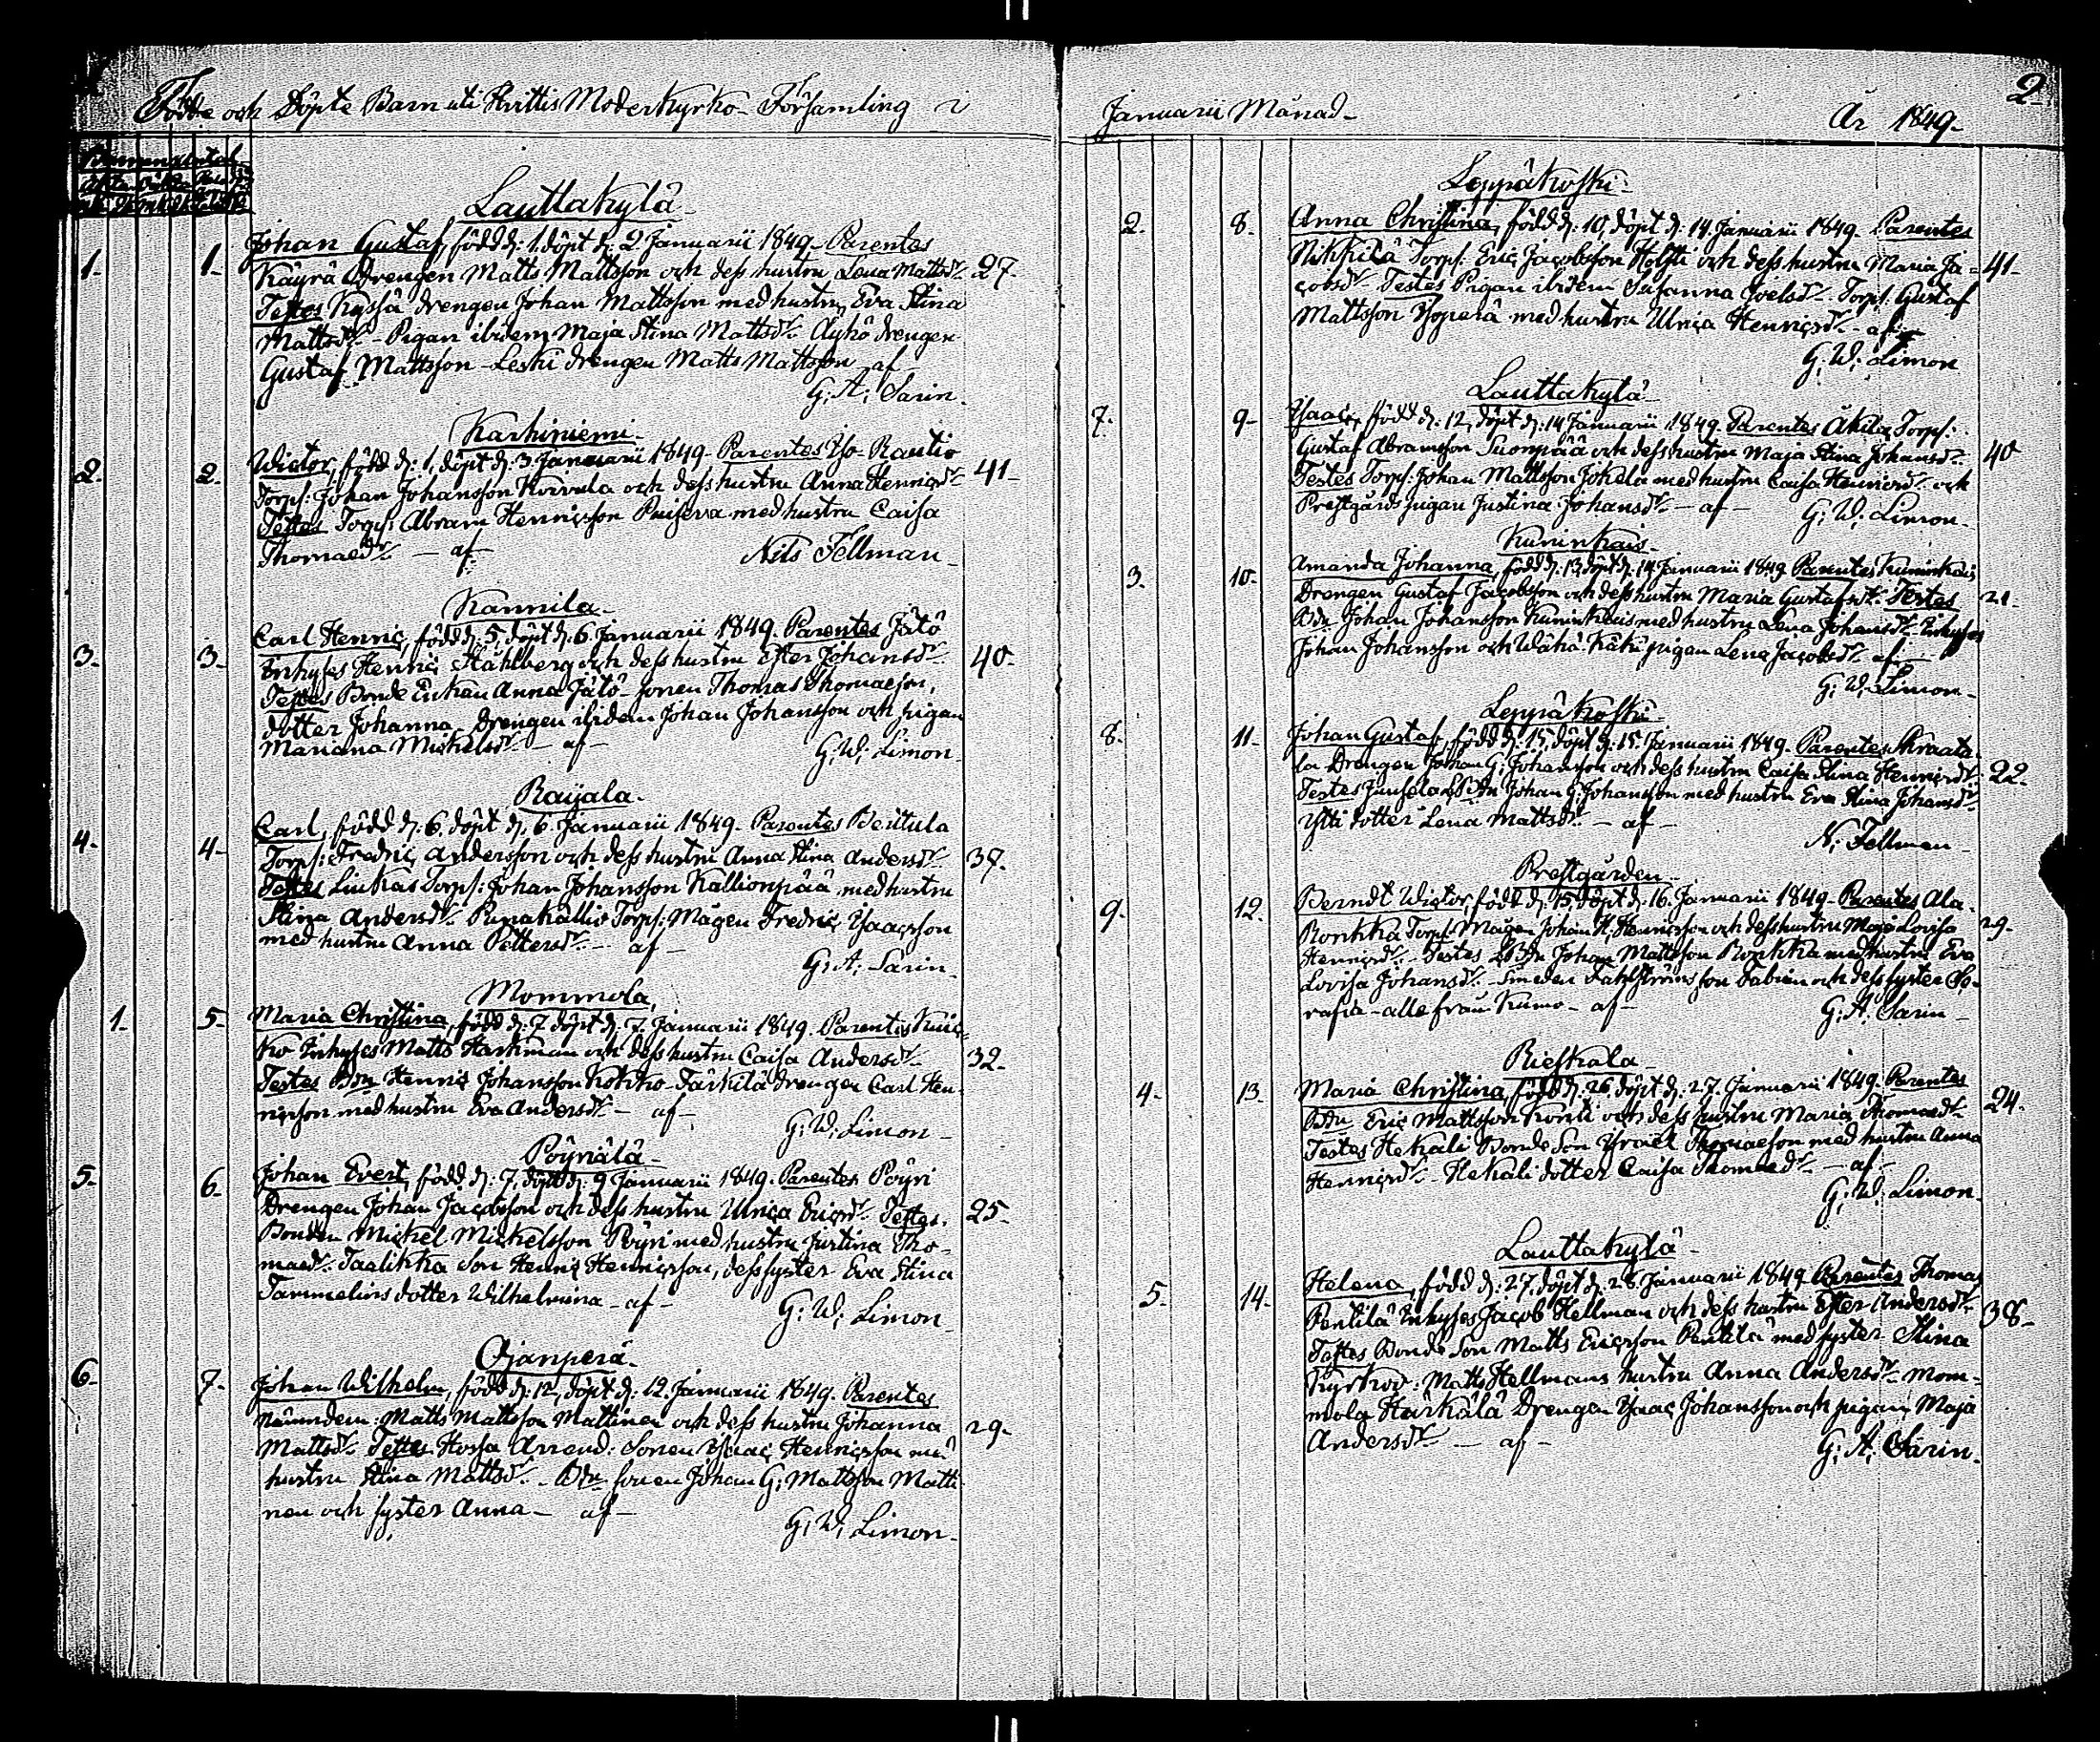 Födde och Döpte Barn uti Hvittis Moderkyrko-Församling i
Lauttakylä
1. 1. Johan Gustaf, född d: 1, döpt d: 2 Januarii 1849 - Parentes
Käyrä Drengen Matts Mattsson och dess hustru Lena Mattsdr 27.
Testes Kyssä drengen Johan Mattsson med hustru Eva Stina
Mattsdr - Pigan ibidem Maja Stina Mattsdr Äyhö drengen
Gustaf Mattsson - Leski drengen Matts Mattsson - af -
G: A: Sarin.
Karhiniemi
2. 2. Victor, född d: 1, döpt d: 3 Januarii 1849 - Parentes Iso-Rautio
Torp: Johan Johansson Korvula och dess hustru Anna Henricsdr 41-
Testes Torp: Abram Henricsson med hustru Caisa
Thomaedr - af - Nils Fellman
Kannila
3. 3. Carl Henric, född d: 5, döpt d: 6 Januarii 1849. Parentes Jätö
Inhyses Henric Ståhlberg och dess hustru Ester Johansdr 40-
Testes Bonde Enkan Anna Jätö - sonen Thomas Thomaeson,
dotter Johanna, Drengen ibidem Johan Johansson och pigan
Mariana Mickelsdr - af - G: W: Limon
Raijala
4. 4. Carl, född d: 6, döpt d: 6 Januarii 1849 - Parentes
Torp: Fredric Andersson och dess hustru Anna Stina Andersdr 37.
Testes Liukas Torp: Johan Johansson Kallionpää med hustru
Stina Andersdr Punakallio Torp: Mågen Fredric Isaacsson
med hustru Anna Pettersdr - af -
G: A: Sarin
Mommola
1. 5. Maria Christina, född d: 7, döpt d: 7 Januarii 1849. Parentes
Inhyses Matts Harkman och dess hustru Caisa Andersdr 32-
Testes Bdn Henric Johansson Kokko - Tärkilä drengen Carl Hen-
ricsson med hustru Eva Andersdr - af -
G: W: Limon
Pöyriälä
5. 6. Johan Evert, född d: 7, döpt d: 9 Januarii 1849. Parentes Pöyri
Drengen Johan Jacobsson och dess hustru Ulrica Ericsdr Testes 25-
Bonden Mickel Mickelsson Pöyri med hustru Justina Tho-
maedr Taalikka Son Henric Henricsson, dess syster Eva Stina
Tammelins dotter Wilhelmina - af - G: W: Limon
Ojanperä
6. 7. Johan Wilhelm, född d: 12, döpt d: 12 Januarii 1849. Parentes
Nämndem: Matts Mattsson Mattinen och dess hustru Johanna 29.
Mattsdr Testes Hossa Arrend: Sonen Isaac Henricsson med
hustru Stina Mattsdr - Bdn sonen Johan G: Mattsson Matti-
nen och syster Anna - af -
G: W: Limon
2
Januarii Månad År 1849
Leppäkoski
2. 8. Anna Christina, född d: 10, döpt d: 14 Januarii 1849. Parentes
Nikkilä Torp: Eric Jacobsson Holsti och dess hustru Maria Ja- 41-
cobsdr Testes Pigan ibidem Susanna Joelsdr Torp: Gustaf
Mattsson med hustru Ulrica Henricsdr - af -
G: W: Limon
Lauttakylä
7. 9. Isaac, född d: 12, döpt d: 14 Januarii 1849. Parentes Äkilä Torp:
Gustaf Abramsson Suonpää och dess hustru Maja Stina Johansdr 40
Testes Torp: Johan Mattsson Jokela med hustru Caisa Henricsdr och
Prestgårds pigan Justina Johansdr - af - G: W: Limon
Kuninkais
3. 10. Amanda Johanna, född d: 13, döpt d: 14 Januarii 1849 Parentes Kuninkais
Drengen Gustaf Jacobsson och dess hustru Maria Gustafsdr Testes 21-
Bdn Johan Johansson Kuninkais med hustru Lena Johansdr Inhyses
Johan Johansson och Wähä-Käki pigan Lena Jacobsdr - af -
G: W: Limon
Leppäkoski
8. 11. Johan Gustaf, född d: 15, döpt d: 15 Januarii 1849. Parentes
Drengen Johan G: Johansson och dess hustru Caisa Stina Henricsdr 22.
Testes Bdn Johan G: Johansson med hustru Eva Stina Johansdr
Ytti dotter Lena Mattsdr - af - N: Fellman
Prestgården
9. 12. Berndt Victor, född d: 15, döpt d: 16 Januarii 1849 - Parentes Ala-
Ronkka Torp: Mågen Johan H: Henricsson och dess hustru Maja Lovisa 29.
Henricsdr - Testes Bdn Johan Mattsson Ronkka med hustru Eva
Lovisa Johansdr - Smeden Fahlströms son Fabian och dess syster Se-
rafia - alle från Kumo - af - G: A: Sarin
Rieskala
4. 13. Maria Christina, född d: 26, döpt d: 27 Januarii 1849. Parentes
Bdn Eric Mattsson Kortti och dess hustru Maria Thomaedr 24.
Testes Hekali Bonde Son Israel Thomaeson med hustru Anna
Henricsdr - Hekali dotter Caisa Thomaedr - af -
G: W: Limon
Lauttakylä
5. 14. Helena, född d: 27, döpt d: 28 Januarii 1849 Parentes Thomas
Pentilä Inhyses Jacob Hellman och dess hustru Ester Andersdr 38-
Testes Bonde Son Matts Ericsson Pentilä med syster Stina
Kyrkov: Matts Hellmans hustru Anna Andersdr - Mom-
mola Härkälä Drengen Isaac Johansson och pigan Maja
Andersdr - af - G: A: Sarin